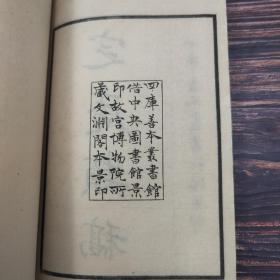 四庫善本叢書館
借中央圖書館景
印故宮博物院所
藏文淵閣本景印